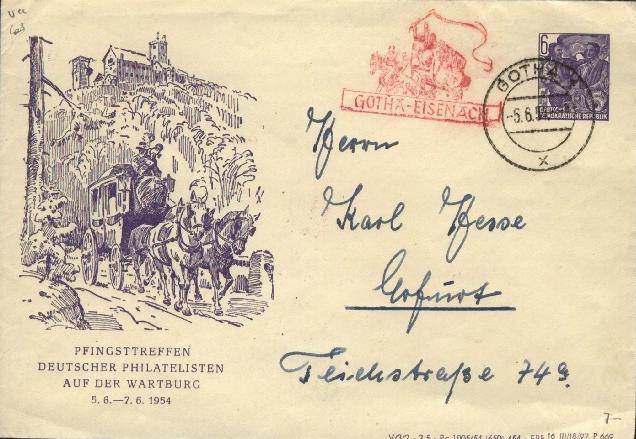 GOTHA-EISENACH
6
DEUTSCHE
DEMOKRATISCHE REPUBLIK
GOTHA
-5.6.
x
Herrn
Karl Hesse
Erfurt
Teichstraße 74a.
PFINGSTTREFFEN
DEUTSCHER PHILATELISTEN
AUF DER WARTBURG
5. 6.—7. 6. 1954
7-